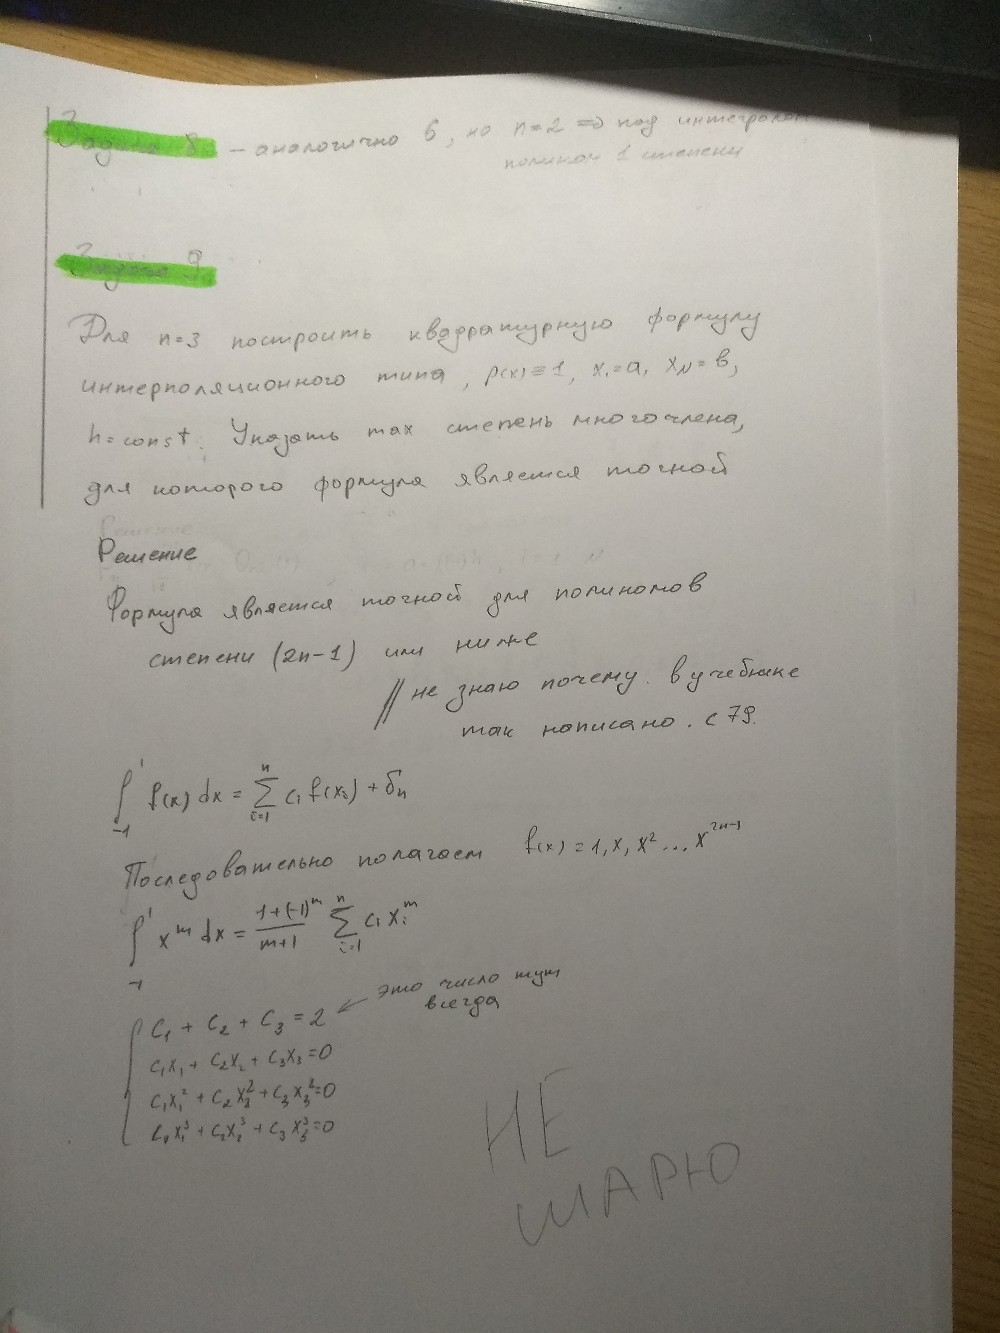 Задача 8 – аналогично 6, но n=2 => под интегралом
полином 1 степени
Задача 9
Для n=3 построить квадратурную формулу
интерполяционного типа, p(x)≡1, x₁=a, x_N=b,
h=const. Указать max степень многочлена,
для которого формула является точной
Решение
Решение
Формула является точной для полиномов
степени (2n-1) или ниже
// не знаю почему. в учебнике
так написано. с 79.
∫₋₁¹ f(x) dx = Σᵢ₌₁ⁿ cᵢ f(xᵢ) + δₙ
Последовательно полагаем f(x) = 1, x, x² ... x²ⁿ⁻¹
∫₋₁¹ xᵐ dx = (1+(-1)ᵐ)/(m+1) Σᵢ₌₁ⁿ cᵢ xᵢᵐ
это число тут
всегда
C₁ + C₂ + C₃ = 2
C₁x₁ + C₂x₂ + C₃x₃ = 0
C₁x₁² + C₂x₂² + C₃x₃² = 0
C₁x₁³ + C₂x₂³ + C₃x₃³ = 0
НЕ
ШАРЮ